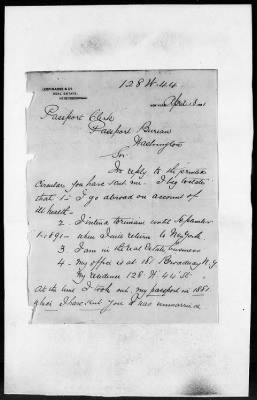 & CO.
REAL ESTATE.
128 W. 44
April 13
Passport Clerk
Passport Bureau
Washington
Sir
In reply to the
Circular you have sent me - I beg to state
that 1 - I go abroad on account of
ill health -
2 - I intend to remain until September
1-1891 - when I will return to New York
3 I am in the Real Estate business
4 - My office is at 181 Broadway N.Y
My residence 128 W. 44" St
At the time I took out my passport in 1881
which I have sent you I was unmarried